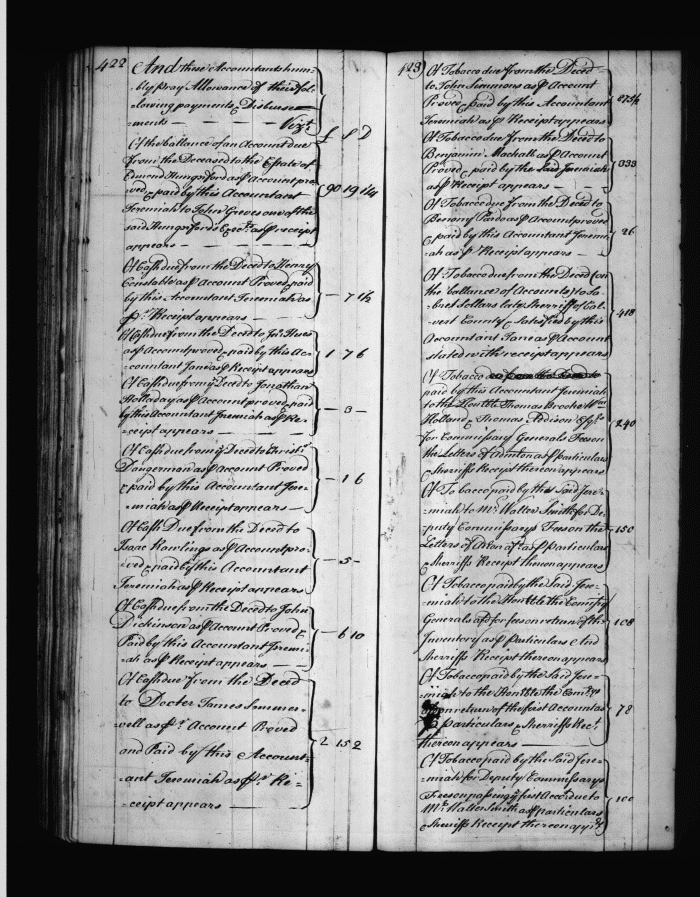 422
And these Accountants hum=
=bly pray Allowance of their fol=
=lowing payments & Disburse=
=ments — — — — Vizt.
£ S D
Of the ballance of an Account due
from the Deceased to the Estate of
Edmund Hungerford as ℔ Account pro=
=ved & paid by this Accountant
Jeremiah to John Greves one of the
said Hungerfords Execrs. as ℔ receipt
appears — — — — — 90 19 1¼
Of Cash due from the Deced to Henry
Constable as ℔ Account Proved & paid
by this Accountant Jeremiah as
℔r. Receipt appears — — — 7 1½
Of Cash due from the Deced to
as ℔ Account proved & paid by this Ac=
=countant Jane as ℔ Receipt appears 1 7 6
Of Cash due from ye Deced to Jonathan
Holladay as ℔ Account proved & paid
by this Accountant Jeremiah as ℔ Re=
=ceipt appears — — — — 3 —
Of Cash due from ye Deced to Christr.
Dangerman as ℔ Account Proved
& paid by this Accountant Jere=
=miah as ℔ Receipt appears — — 1 6
Of Cash Due from the Deced to
Isaac Rawlings as ℔ Account pro=
=ved & paid by this Accountant
Jeremiah as ℔ Receipt appears — 5 —
Of Cash due from the Deced to John
Dickinson as ℔ Account Proved &
Paid by this Accountant Jeremi=
=ah as ℔ Receipt appears — — — 6 10
Of Cash due from the Deced
to Docter James Somer=
=vell as ℔r. Account Proved
and Paid by this Account=
=ant Jeremiah as ℔r. Re=
=ceipt appears — — — 2 15 2
423
Of Tobacco due from the Deced
to John Simmons as ℔ Account
Proved & paid by this Accountant
Jeremiah as ℔ Receipt appears
Of Tobacco due from the Deced to
Benjamin Mackall as ℔ Account
Proved & paid by the said Jeremiah
as ℔ Receipt appears — — — 333
Of Tobacco due from the Deced to
Benony Pardo as ℔ Account proved
& paid by this Accountant Jeremi=
=ah as ℔ Receipt appears — — 26
Of Tobacco due from the Deced on
the ballance of Accounts to Ga=
=briel Sellers late Sherriff of Cal=
=vert County & Satisfied by this
Accountant Jane as ℔ Account
stated with receipt appears 418
Of Tobacco
paid by this Accountant Jeremiah
to the Honble. Thomas Brooke Wm.
Holland & Thomas Addison Esqrs.
for Commissary Generals Fees on
the Letters of Admton as ℔ particulars
& Sherriffs Receipt thereon appears 240
Of Tobacco paid by the Said Jere=
=miah to Mr. Walter Smith for De=
=puty Commissarys Fees on the
Letters of Admon &ca. as ℔ Particulars
& Sherriffs Receipt thereon appears 150
Of Tobacco paid by the Said Jere=
=miah to the Honble. the Comissry
Generals afd. for fees on return of the
Inventory as ℔ Particulars And
Sherriffs Receipt thereon appears 108
Of Tobacco paid by the Said Jere=
=miah to the Honble. the
upon return of the first Account as
℔ particulars & Sherriffs Rect.
thereon appears — — 78
Of Tobacco paid by the Said Jere=
=miah for Deputy Commissarys
Fees on passing ye first Acct. due to
Mr. Walter Smith as ℔ particulars
& Sherriffs Receipt thereon appears 100